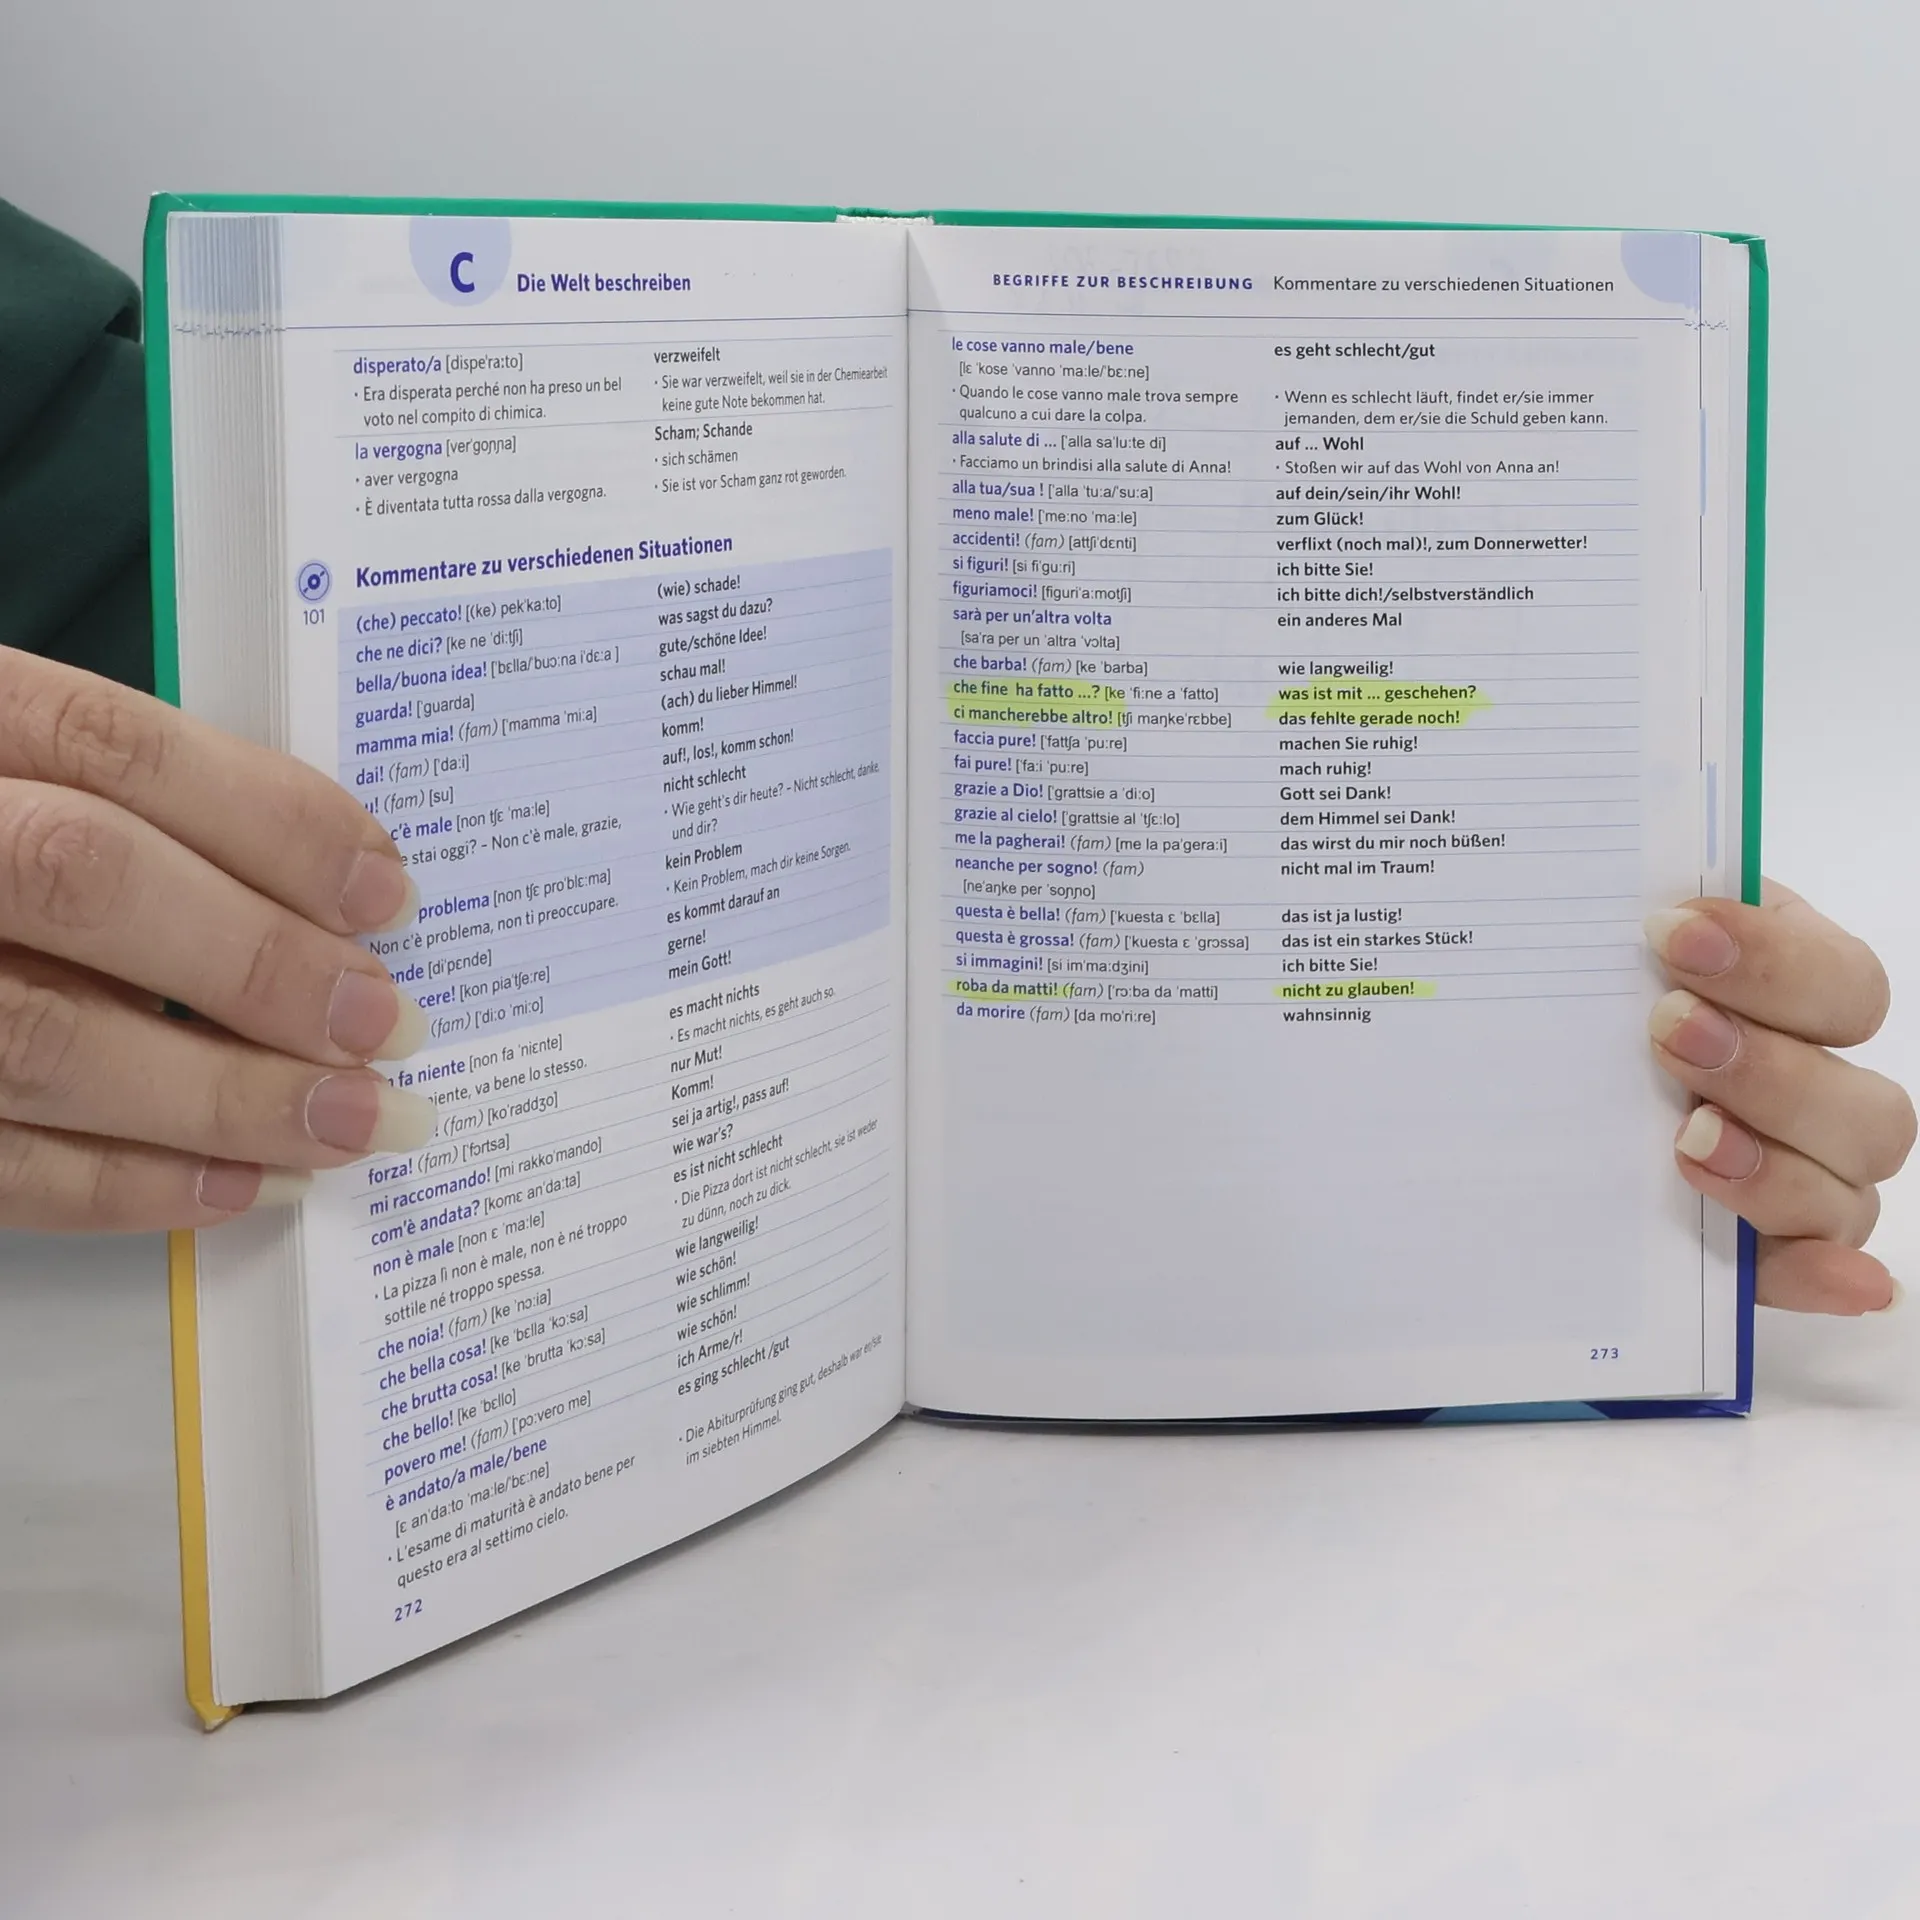 C Die Welt beschreiben
disperato/a [dispeˈraːto] verzweifelt
· Era disperata perché non ha preso un bel · Sie war verzweifelt, weil sie in der Chemiearbeit
voto nel compito di chimica. keine gute Note bekommen hat.
la vergogna [verˈɡoɲɲa] Scham; Schande
· aver vergogna · sich schämen
· È diventata tutta rossa dalla vergogna. · Sie ist vor Scham ganz rot geworden.
Kommentare zu verschiedenen Situationen
101
(che) peccato! [(ke) pekˈkaːto] (wie) schade!
che ne dici? [ke ne ˈdiːtʃi] was sagst du dazu?
bella/buona idea! [ˈbɛlla/ˈbuɔːna iˈdɛːa] gute/schöne Idee!
guarda! [ˈɡuarda] schau mal!
mamma mia! (fam) [ˈmamma ˈmiːa] (ach) du lieber Himmel!
dai! (fam) [ˈdaːi] komm!
! (fam) [su] auf!, los!, komm schon!
c'è male [non tʃɛ ˈmaːle] nicht schlecht
stai oggi? – Non c'è male, grazie, · Wie geht's dir heute? – Nicht schlecht, danke,
und dir?
problema [non tʃɛ proˈblɛːma] kein Problem
Non c'è problema, non ti preoccupare. · Kein Problem, mach dir keine Sorgen.
[diˈpɛnde] es kommt darauf an
[kon piaˈtʃeːre] gerne!
(fam) [ˈdiːo ˈmiːo] mein Gott!
fa niente [non fa ˈniɛnte] es macht nichts
niente, va bene lo stesso. · Es macht nichts, es geht auch so.
! (fam) [koˈraddʒo] nur Mut!
forza! (fam) [ˈfɔrtsa] Komm!
mi raccomando! [mi rakkoˈmando] sei ja artig!, pass auf!
com'è andata? [komɛ anˈdaːta] wie war's?
non è male [non ɛ ˈmaːle] es ist nicht schlecht
· La pizza lì non è male, non è né troppo · Die Pizza dort ist nicht schlecht, sie ist weder
sottile né troppo spessa. zu dünn, noch zu dick.
che noia! (fam) [ke ˈnɔːia] wie langweilig!
che bella cosa! [ke ˈbɛlla ˈkɔːsa] wie schön!
che brutta cosa! [ke ˈbrutta ˈkɔːsa] wie schlimm!
che bello! [ke ˈbɛllo] wie schön!
povero me! (fam) [ˈpɔːvero me] ich Arme/r!
è andato/a male/bene es ging schlecht /gut
[ɛ anˈdaːto ˈmaːle/ˈbɛːne]
· L'esame di maturità è andato bene per · Die Abiturprüfung ging gut, deshalb war er/sie
questo era al settimo cielo. im siebten Himmel.
272
BEGRIFFE ZUR BESCHREIBUNG Kommentare zu verschiedenen Situationen
le cose vanno male/bene es geht schlecht/gut
[lɛ ˈkose ˈvanno ˈmaːle/ˈbɛːne]
· Quando le cose vanno male trova sempre · Wenn es schlecht läuft, findet er/sie immer
qualcuno a cui dare la colpa. jemanden, dem er/sie die Schuld geben kann.
alla salute di ... [ˈalla saˈluːte di] auf ... Wohl
· Facciamo un brindisi alla salute di Anna! · Stoßen wir auf das Wohl von Anna an!
alla tua/sua ! [ˈalla ˈtuːa/ˈsuːa] auf dein/sein/ihr Wohl!
meno male! [ˈmeːno ˈmaːle] zum Glück!
accidenti! (fam) [attʃiˈdɛnti] verflixt (noch mal)!, zum Donnerwetter!
si figuri! [si fiˈɡuːri] ich bitte Sie!
figuriamoci! [fiɡuriˈaːmotʃi] ich bitte dich!/selbstverständlich
sarà per un'altra volta ein anderes Mal
[saˈra per un ˈaltra ˈvɔlta]
che barba! (fam) [ke ˈbarba] wie langweilig!
che fine ha fatto ...? [ke ˈfiːne a ˈfatto] was ist mit ... geschehen?
ci mancherebbe altro! [tʃi maŋkeˈrɛbbe] das fehlte gerade noch!
faccia pure! [ˈfattʃa ˈpuːre] machen Sie ruhig!
fai pure! [ˈfaːi ˈpuːre] mach ruhig!
grazie a Dio! [ˈɡrattsie a ˈdiːo] Gott sei Dank!
grazie al cielo! [ˈɡrattsie al ˈtʃɛːlo] dem Himmel sei Dank!
me la pagherai! (fam) [me la paˈɡeraːi] das wirst du mir noch büßen!
neanche per sogno! (fam) nicht mal im Traum!
[neˈaŋke per ˈsoɲɲo]
questa è bella! (fam) [ˈkuesta ɛ ˈbɛlla] das ist ja lustig!
questa è grossa! (fam) [ˈkuesta ɛ ˈɡrɔssa] das ist ein starkes Stück!
si immagini! [si imˈmaːdʒini] ich bitte Sie!
roba da matti! (fam) [ˈrɔːba da ˈmatti] nicht zu glauben!
da morire (fam) [da moˈriːre] wahnsinnig
273